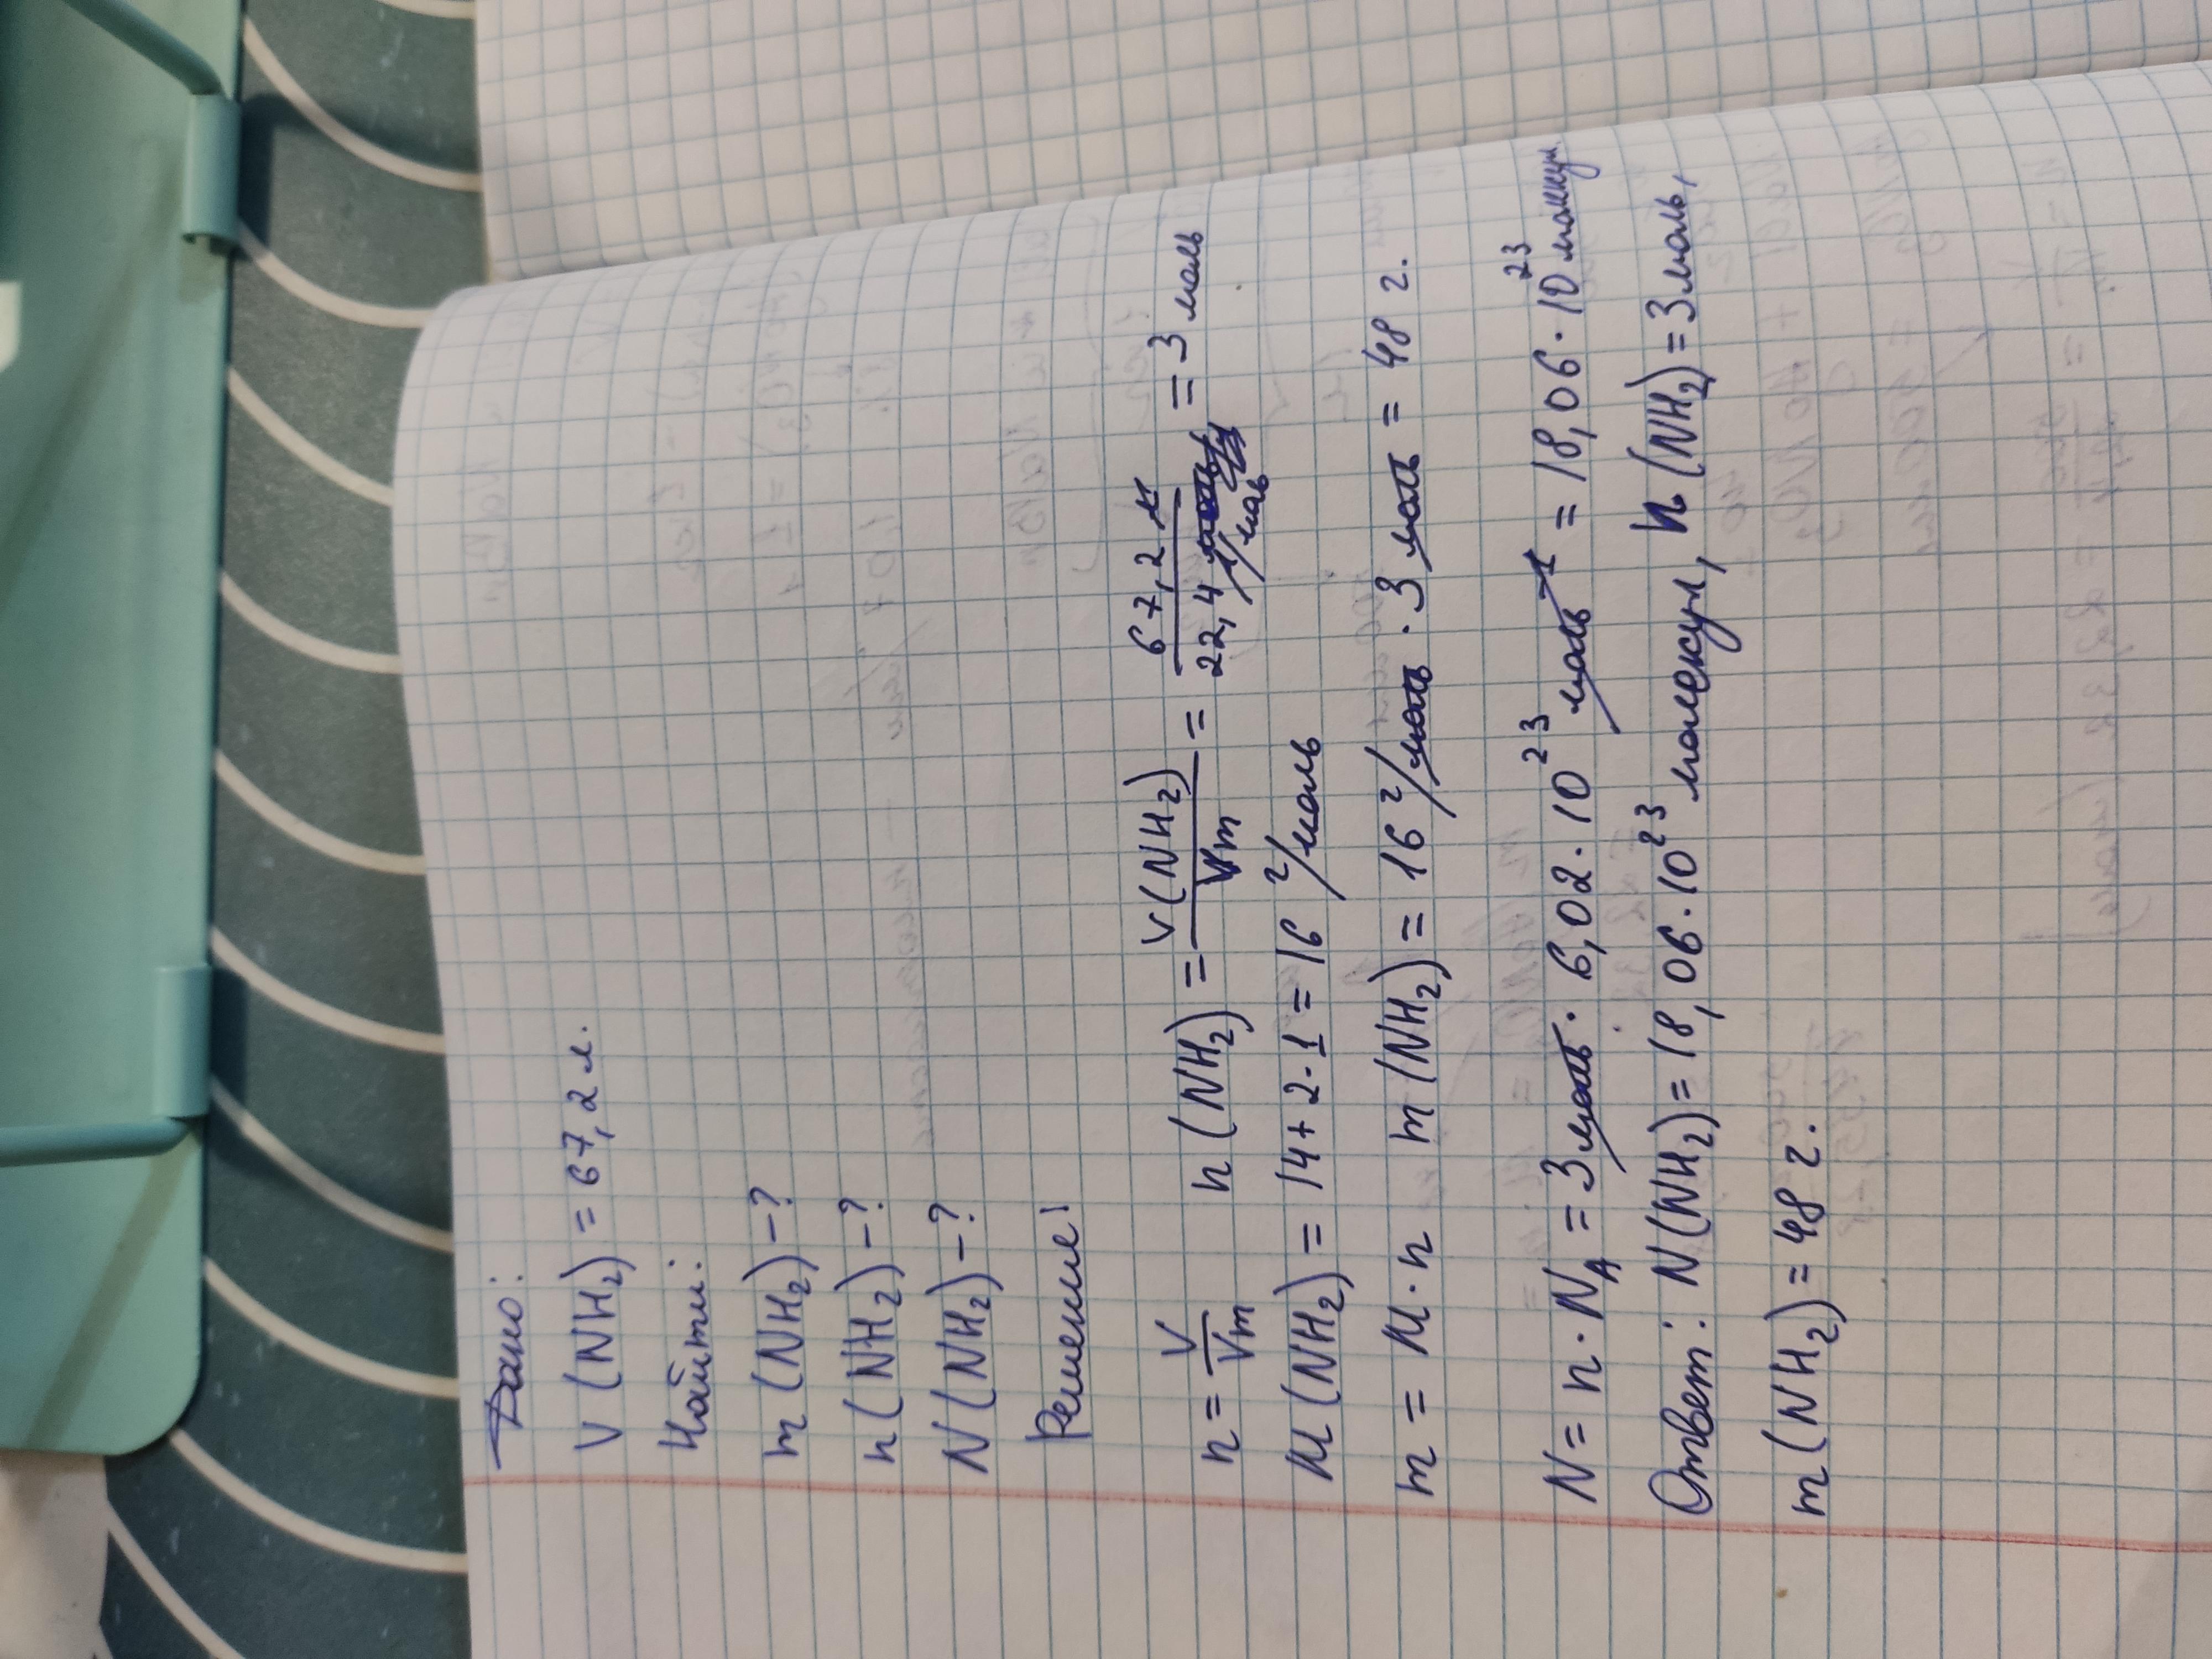 Дано:
V (NH₂) = 67,2 л.
Найти:
m (NH₂) - ?
n (NH₂) - ?
N (NH₂) - ?
Решение:
n = V/Vm n (NH₂) = V(NH₂)/Vm = 67,2 л/22,4 л/моль = 3 моль
M (NH₂) = 14 + 2 · 1 = 16 г/моль
m = M · n m (NH₂) = 16 г/моль · 3 моль = 48 г.
N = n · N_A = 3 моль · 6,02 · 10²³ моль⁻¹ = 18,06 · 10²³ молекул
Ответ: N (NH₂) = 18,06 · 10²³ молекул, n (NH₂) = 3 моль,
m (NH₂) = 48 г.